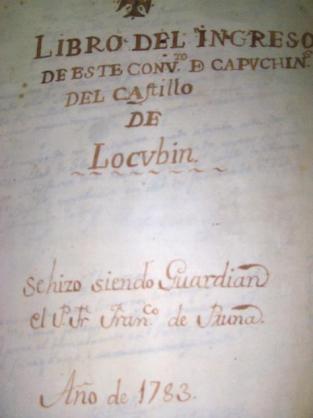 LIBRO DEL INGRESO
DE ESTE CONV.to Đ CAPVCHIN.s
DEL CAstillo
DE
Locvbin.
Se hizo siendo Guardian
el P. Fr. Fran.co de
Año de 1783.